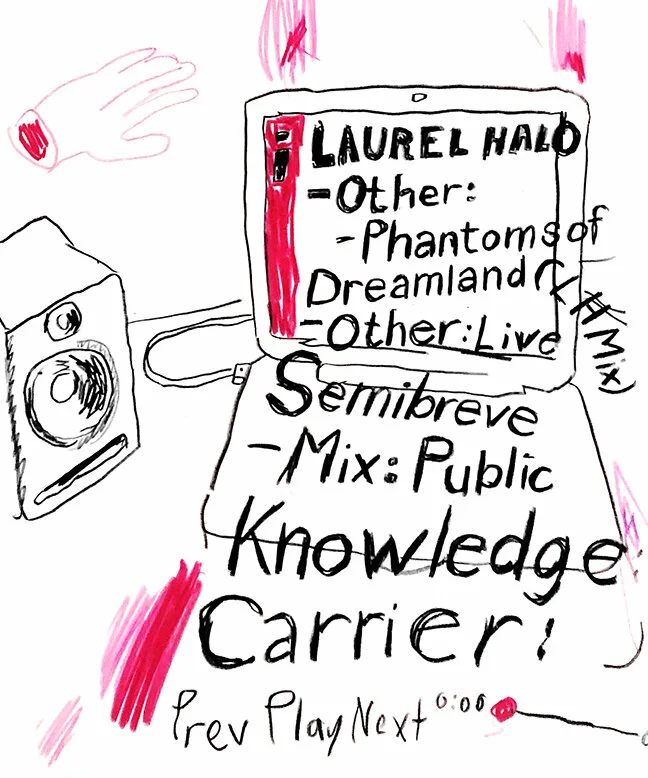 LAUREL HALO
-Other:
-Phantoms of
Dreamland (LH Mix)
-Other: Live
Semibreve
-Mix: Public
Knowledge
Carrier!
Prev Play Next 0:00